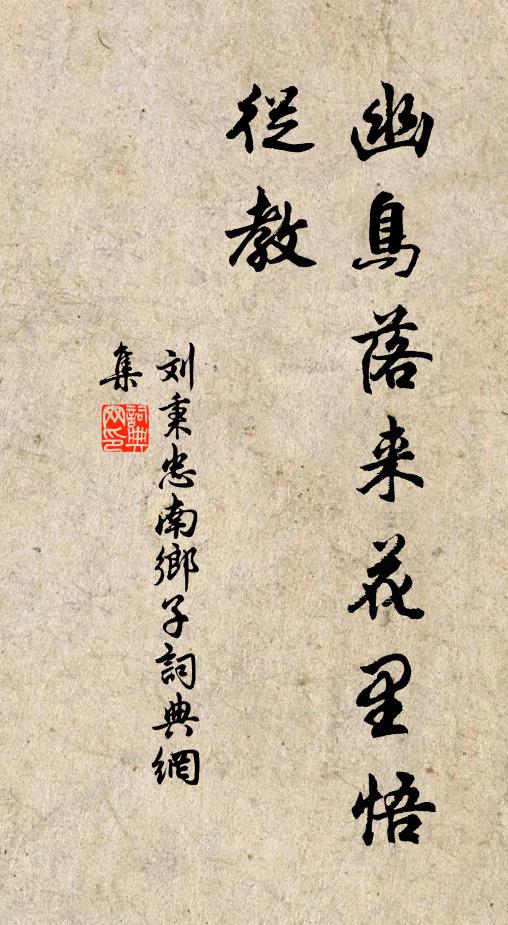 幽鳥落来花里悟
從教
刘秉忠南鄉子詞典網
集
詞典
网印